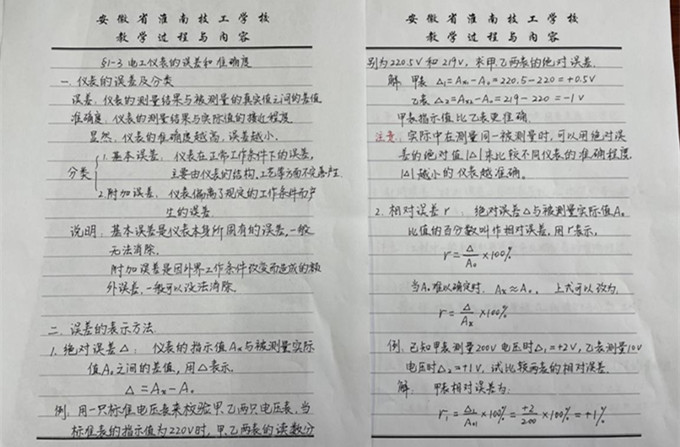 安徽省淮南技工学校
教学过程与内容
§1-3 电工仪表的误差和准确度
一. 仪表的误差及分类
误差: 仪表的测量结果与被测量的真实值之间的差值
准确度: 仪表的测量结果与实际值的接近程度
显然, 仪表的准确度越高, 误差越小.
分类
1. 基本误差: 仪表在正常工作条件下的误差,
主要由仪表的结构,工艺等方面不完善产生.
2. 附加误差: 仪表偏离了规定的工作条件而产
生的误差
说明: 基本误差是仪表本身所固有的误差,一般
无法消除.
附加误差是因外界工作条件改变而造成的额
外误差,一般可以设法消除.
二. 误差的表示方法.
1. 绝对误差△: 仪表的指示值Ax与被测量实际
值A₀之间的差值, 用△表示.
△=Ax-A₀
例: 用一只标准电压表来校验甲.乙两只电压表,当
标准表的指示值为220V时, 甲.乙两表的读数分
安徽省淮南技工学校
教学过程与内容
别为220.5V和219V, 求甲.乙两表的绝对误差.
解: 甲表 △₁=Ax₁-A₀=220.5-220=+0.5V
乙表 △₂=Ax₂-A₀=219-220=-1V
甲表指示值比乙表更准确.
注意: 实际中在测量同一被测量时,可以用绝对误
差的绝对值|△|来比较不同仪表的准确程度,
|△|越小的仪表越准确.
2. 相对误差r: 绝对误差△与被测量实际值A₀
比值的百分数叫作相对误差, 用r表示,
r=△/A₀×100%
当A₀难以确定时, Ax≈A₀, 上式可以改为,
r=△/Ax×100%
例: 已知甲表测量200V电压时△₁=+2V,乙表测量10V
电压时△₂=+1V, 试比较两表的相对误差.
解: 甲表相对误差为:
r₁=△₁/A₀₁×100%=+2/200×100%=+1%